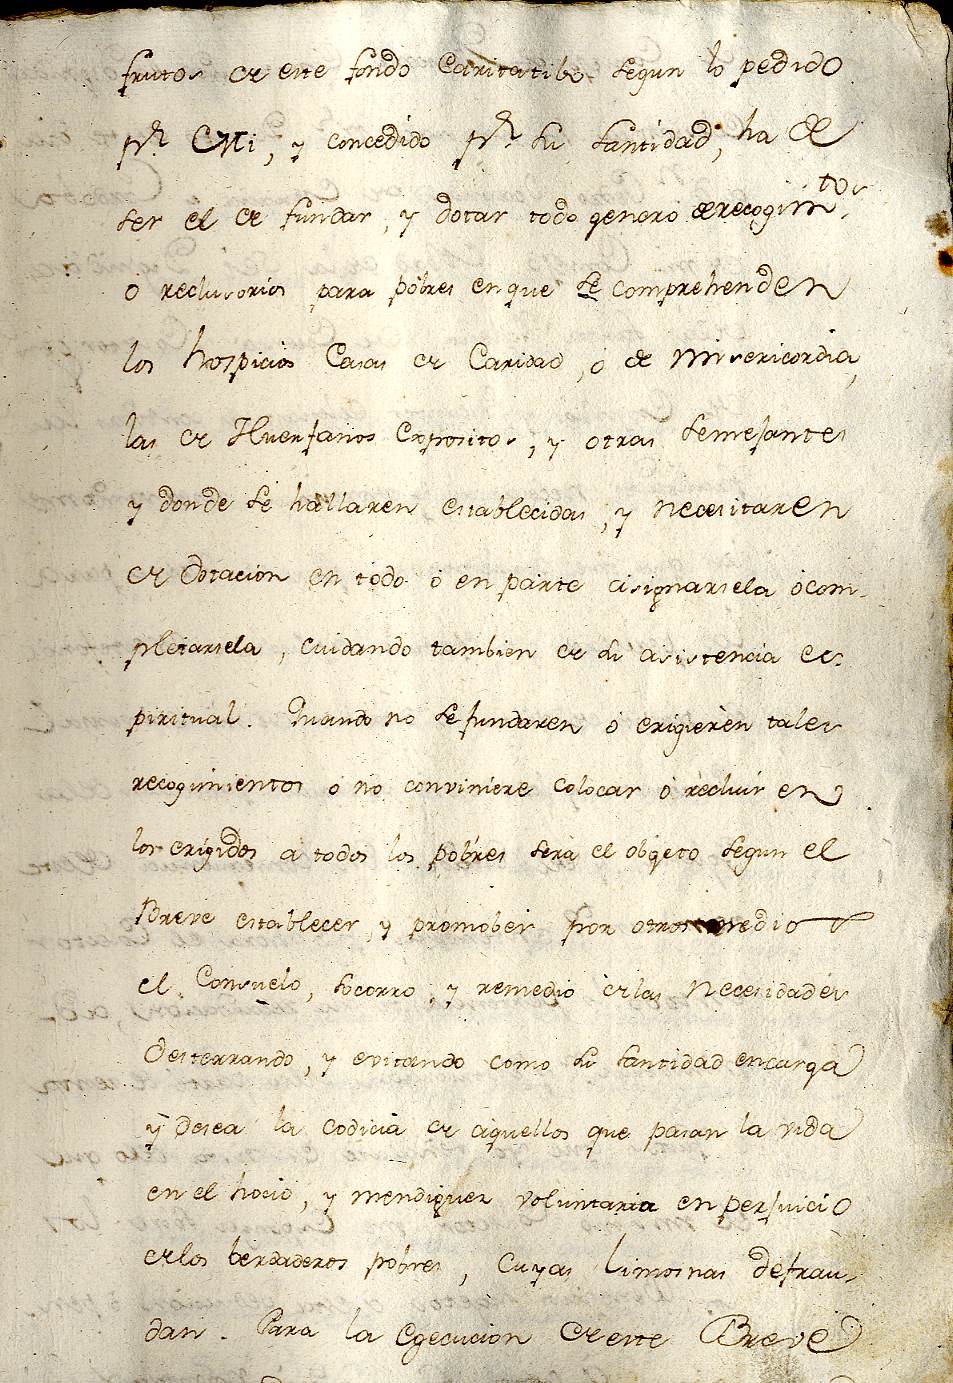 frutos de este fondo Caritatibo segun lo pedido
pr. Mi, y concedido pr. su santidad, ha de
ser el de fundar, y dotar todo genero de recogimtos.
o reclusorios para pobres en que se comprehenden
los hospicios Casas de Caridad, o de Misericordia,
las de Huerfanos Expositos, y otras semejantes
y donde se hallaren establecidas, y necesitaren
de Dotacion en todo o en parte asignarsela o com-
pletarsela, cuidando tambien de su asistencia es-
piritual. Quando no se fundaren o erigieren tales
recogimientos o no conviniere colocar o recluir en
los erigidos a todos los pobres sera el obgeto segun el
Breve establecer, y promober por otros medios
el Consuelo, socorro, y remedio de las necesidades
Desterrando, y evitando como su santidad encarga
y Desea la codicia de aquellos que pasan la vida
en el hocio, y mendiguez voluntaria en perjuicio
de los berdaderos pobres, cuyas limosnas defrau-
dan. Para la Egecucion de este Breve